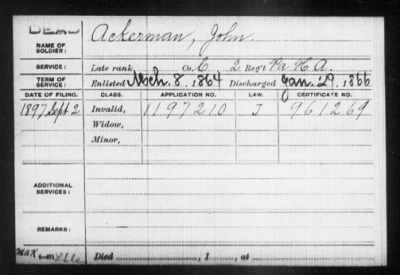 DEAD
NAME OF SOLDIER: Ackerman, John.
SERVICE: Late rank, Co. C, 2 Reg't Pa H A.
TERM OF SERVICE: Enlisted Mch 8, 1864 Discharged Jan. 29, 1866
DATE OF FILING. CLASS. APPLICATION NO. LAW. CERTIFICATE NO.
1897 Sept 2 Invalid, 1197210 J 961269
Widow,
Minor,
ADDITIONAL SERVICES:
REMARKS:
Died , 1 , at